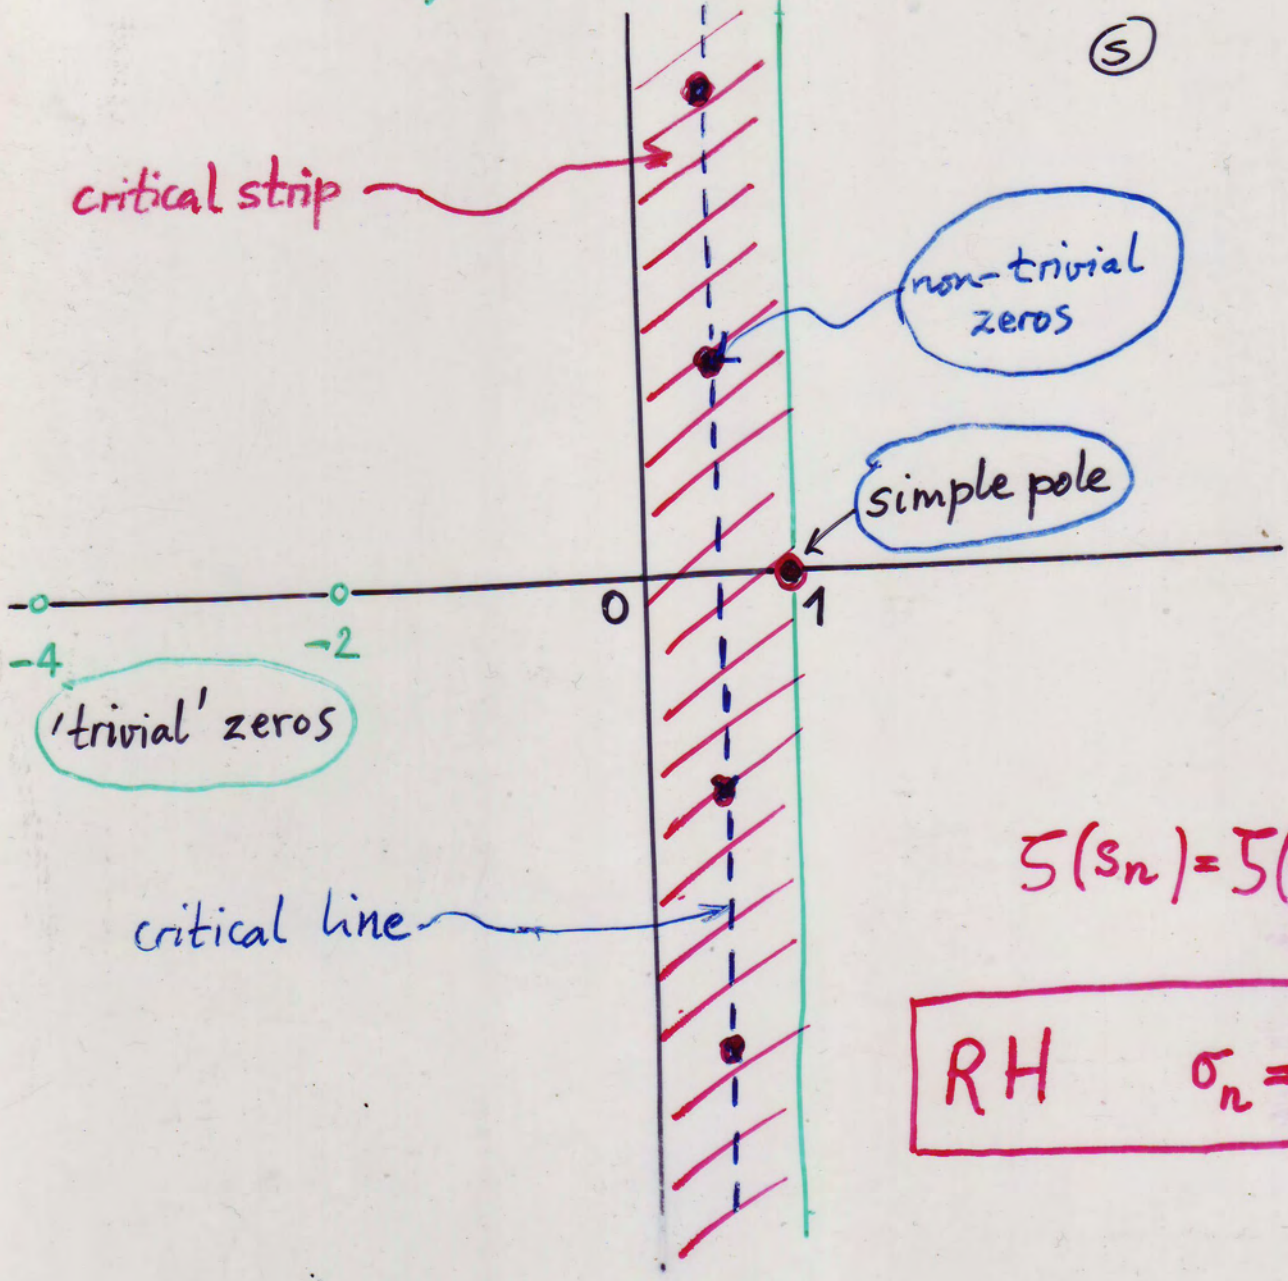 s
critical strip
non-trivial
zeros
simple pole
0
1
-4
-2
'trivial' zeros
ζ(sₙ)=ζ(
critical line
RH σₙ=